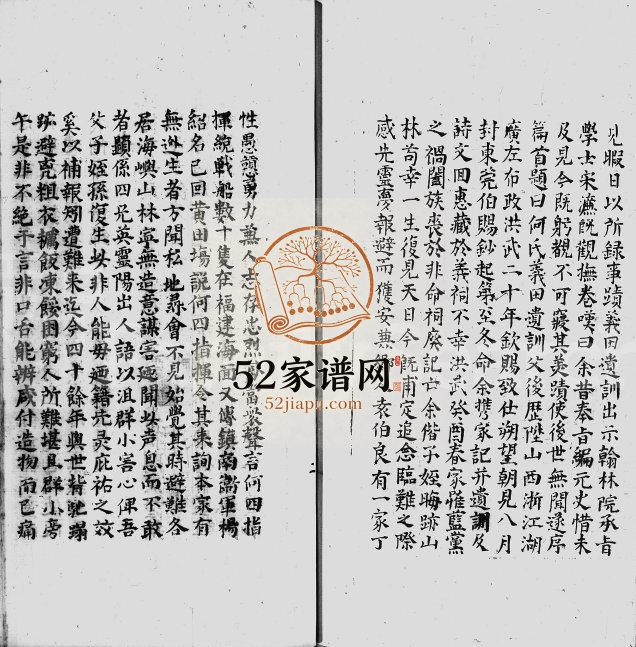 見暇日以所録事蹟義田遺訓出示翰林院承旨
學士宋濂既觀撫卷嘆曰余昔奉旨編元史惜未
及見今既躬覩不可寢其美蹟使後世無聞遂序
篇首題曰何氏義田遺訓父後歷陞山西浙江湖
廣左布政洪武二十年欽賜致仕朔望朝見八月
封東莞伯賜鈔起第至冬命余携家記并遺訓及
詩文回惠藏於義祠不幸洪武癸酉春家罹藍黨
之禍闔族喪於非命祠廢記亡余偕子姪晦跡山
林苟幸一生復見天日今既甫定追念臨難之際
感先靈憂報避而獲安無 袁伯良有一家丁
性愚頑勇力無人志存忠烈 當衆聲言何四指
揮統戰船數十隻在福建海面又傳鎮南 軍楊
紹名已回黄田場説何四指揮令其來詢本家有
無逃生者方聞私地尋會不見始覺其時避難各
居海嶼山林寧無造意謀害極聞以声息而不敢
者頼係四兄英靈陽出人語以沮群小害心俾吾
父子姪孫復生以非人能毋廼藉先灵庇祐之效
奚以補報矧遭難來迄今四十餘年與世背馳 
跡避 粗衣糲飯凍餒困窮人所難堪且群小旁
午是非不絶乎言非口舌能辨咸付造物而已痛
52家谱网
52jiapu.com